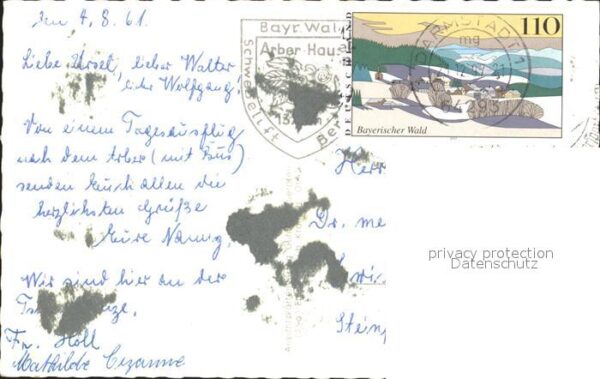 den 4. 8. 61.
Liebe Ursel, lieber Walter
lieber Wolfgang,
Von einem Tagesausflug
nach dem Arber (mit Bus)
senden Euch allen die
herzlichsten Grüße
Eure Nanny.
Wir sind hier an der
Fr. Höll
Mathilde
Bayr. Wald
Arber Haus
Schwebelift
DEUTSCHLAND
110
DARMSTADT 1
mg
64293
Bayerischer Wald
Herr
Dr. me
privacy protection
Datenschutz